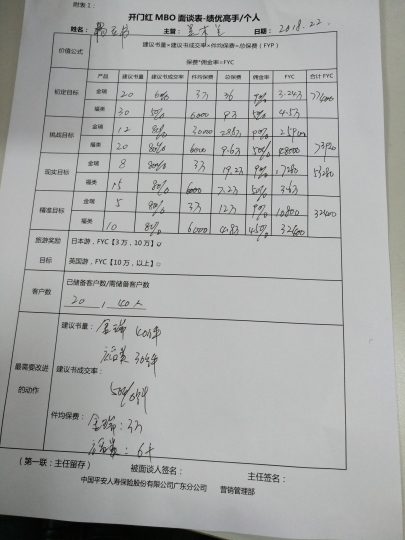 附表1：
开门红 MBO 面谈表-绩优高手/个人
姓名： 主管： 日期：2018.22.
价值公式 建议书量×建议书成交率×件均保费=总保费（FYP）
保费*佣金率=FYC
产品 建议书量 建议书成交率 件均保费 总保费 佣金率 FYC 合计 FYC
初定目标 金瑞 20 60% 3万 36 9% 3.24万 77400
福类 30 50% 6000 9万 50% 4.5万
挑战目标 金瑞 12 80% 3000 28.8万 9% 25920 73920
福类 20 80% 6000 9.6万 50% 48000
现实目标 金瑞 8 80% 3万 19.2万 9% 17280 53280
福类 15 80% 6000 7.2万 50% 3.6万
精准目标 金瑞 5 80% 3万 12万 9% 10800 32400
福类 10 80% 6000 4.8万 45% 32400
旅游奖励 日本游，FYC【3 万，10 万】
目标 英国游，FYC【10 万，以上】□
客户数 已储备客户数/需储备客户数
20 / 40人
最需要改进的动作
建议书量： 金瑞 40件
福类 30件
建议书成交率：
50%
件均保费：
金瑞：3万
福类：6千
（第一联：主任留存） 被面谈人签名： 主任签名：
中国平安人寿保险股份有限公司广东分公司 营销管理部